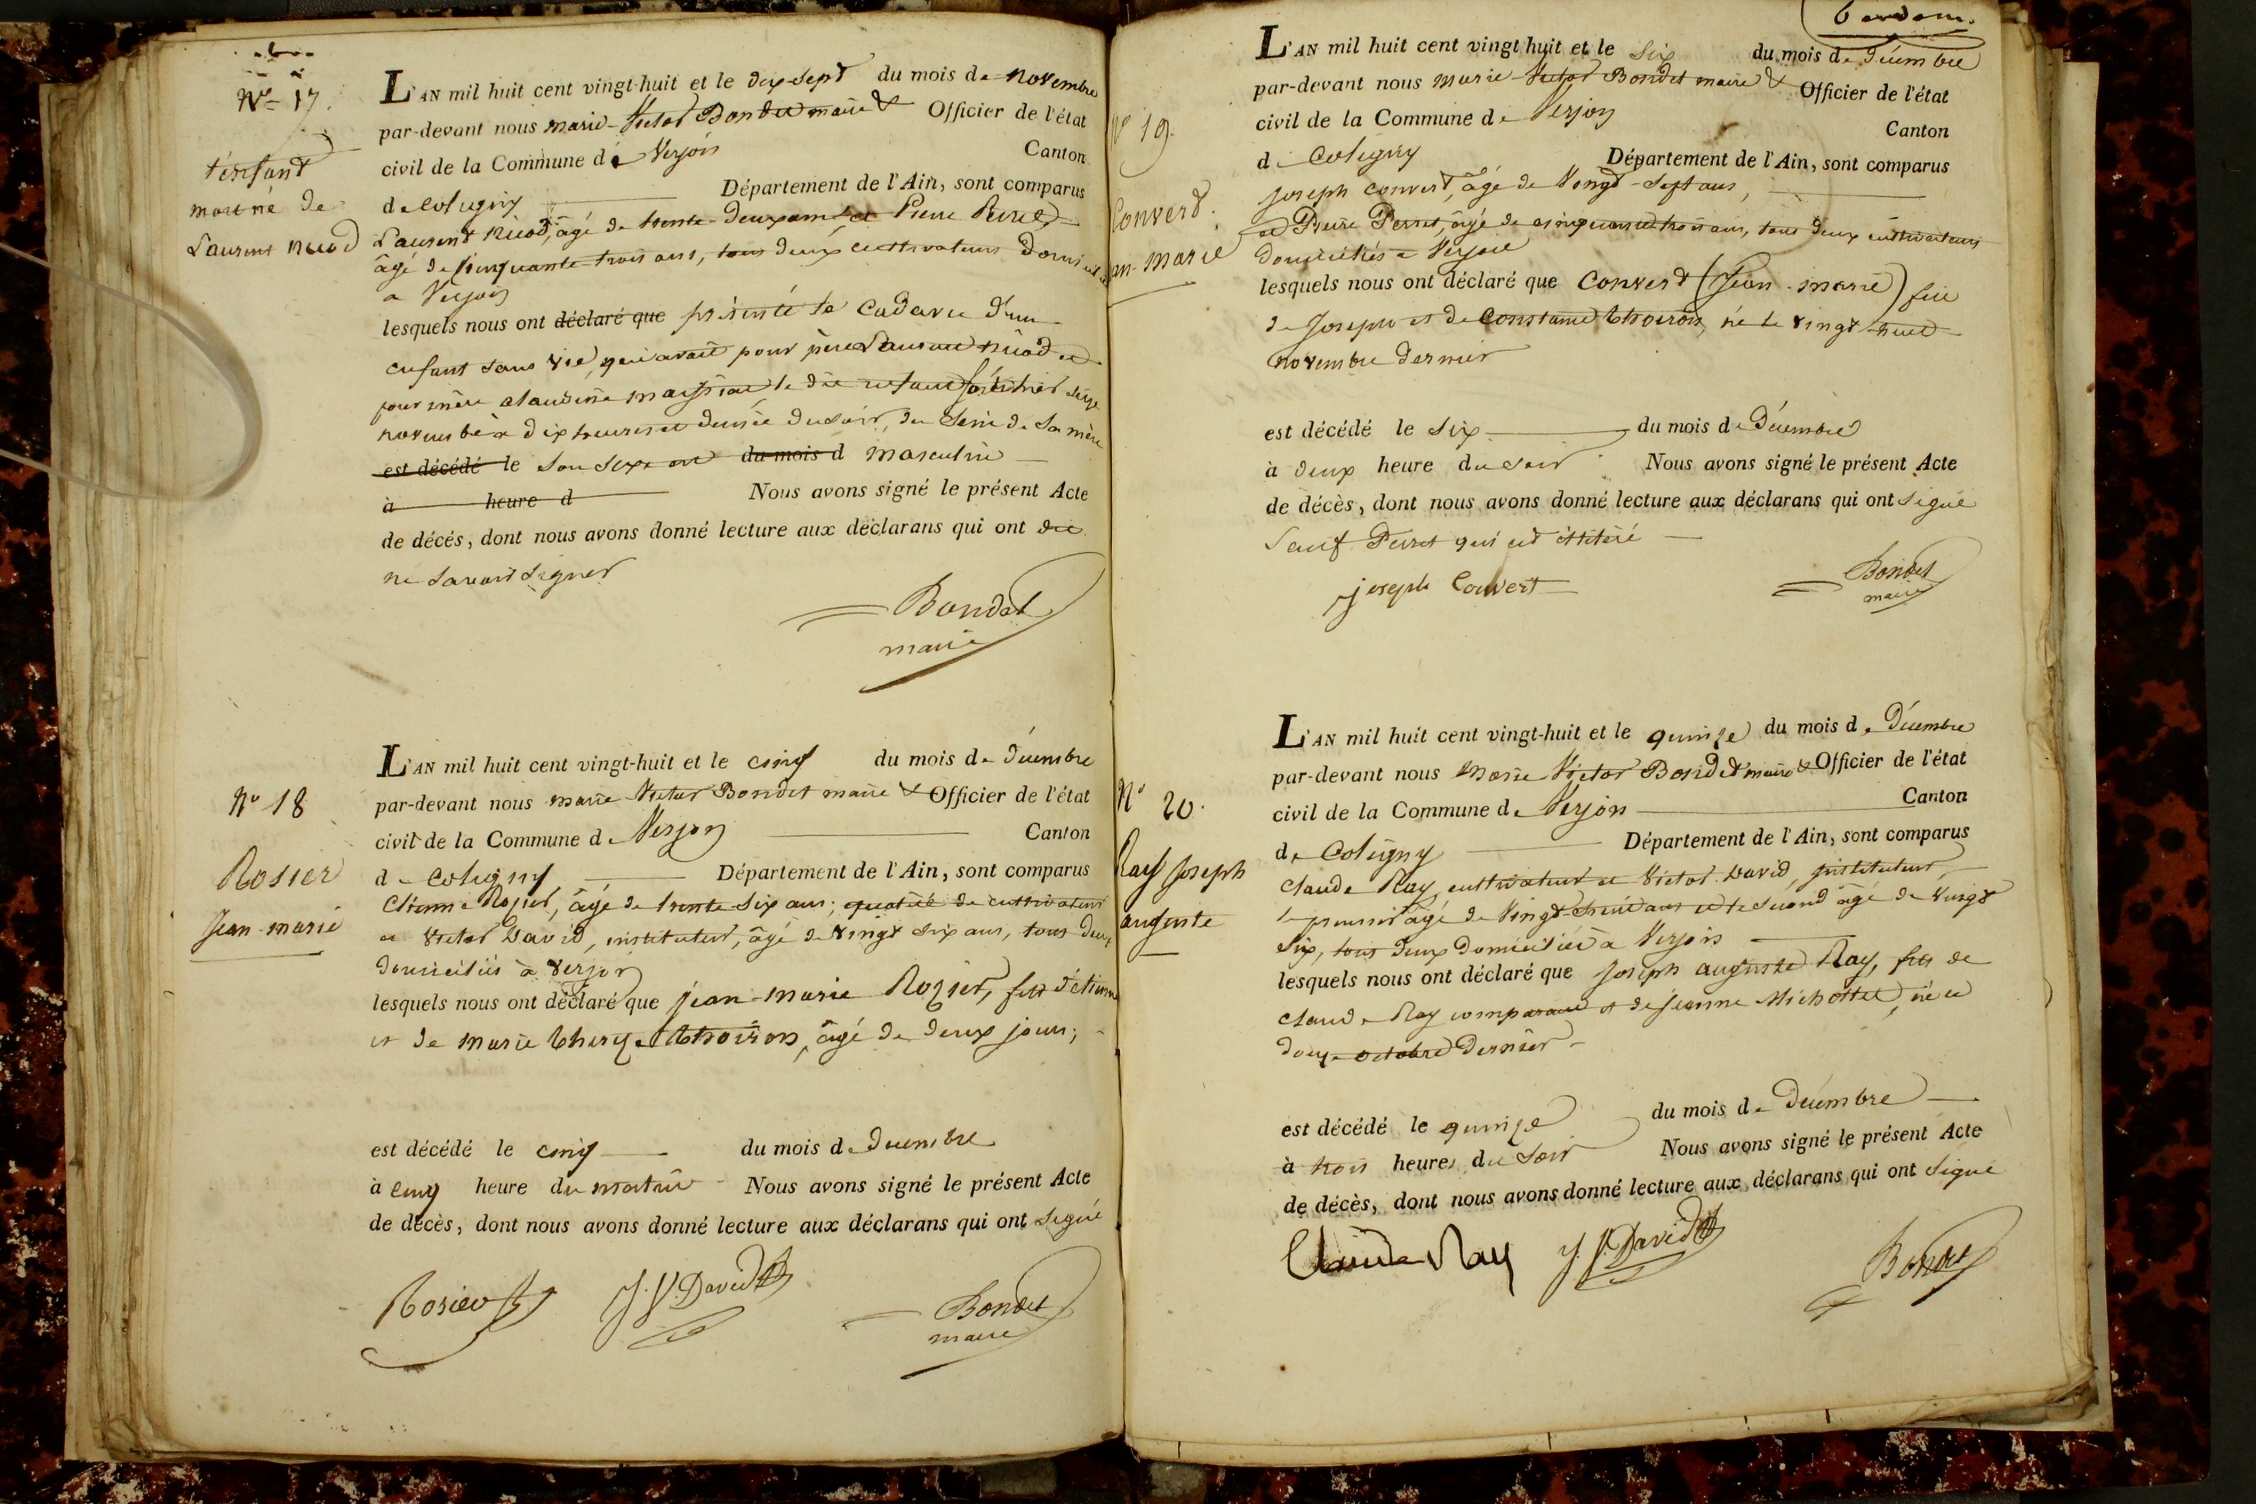 N° 17.
l'enfant
mort né de
Laurent Nicod
L'AN mil huit cent vingt-huit et le dix sept du mois de novembre
par-devant nous marie-Victor Bondet maire & Officier de l'état
civil de la Commune de Verjon Canton
de Coligny Département de l'Ain, sont comparus
Laurent Nicod, âgé de trente-deux ans, et Pierre Perret
âgé de cinquante-trois ans, tous deux cultivateurs domiciliés
a Verjon
lesquels nous ont déclaré que présenté le cadavre d'un
enfant sans vie, qui avait pour père Laurent Nicod et
pour mère claudine le dit enfant sorti hier seize
novembre à dix heures et demie du soir, du sein de sa mère
est décédé le son sexe est du mois d masculin
à heure d Nous avons signé le présent Acte
de décés, dont nous avons donné lecture aux déclarans qui ont dit
ne savoir signer
Bondet
maire
N° 18
Rosier
Jean-marie
L'AN mil huit cent vingt-huit et le cinq du mois de décembre
par-devant nous marie Victor Bondet maire & Officier de l'état
civil de la Commune de Verjon Canton
de Coligny Département de l'Ain, sont comparus
Etienne Rosier, âgé de trente-six ans, de cultivateur
et Victor David, instituteur, âgé de vingt six ans, tous deux
domiciliés à Verjon
lesquels nous ont déclaré que jean-marie Rozier, fils d'étienne
et de marie therese Thoiron, âgé de deux jours,
est décédé le cinq du mois de Décembre
à cinq heure du matin Nous avons signé le présent Acte
de décès, dont nous avons donné lecture aux déclarans qui ont signé
Rosier J. V. David
Bondet
maire
N° 19.
Convert.
an-marie
L'AN mil huit cent vingt huit et le six du mois de Décembre
par-devant nous marie Victor Bondet maire & Officier de l'état
civil de la Commune de Verjon Canton
de Coligny Département de l'Ain, sont comparus
Joseph convert, âgé de Vingt-sept ans,
et Pierre Perret, âgé de cinquante trois ans, tous deux cultivateurs
domiciliés a Verjon
lesquels nous ont déclaré que Convert (Jean-marie) fils
de Joseph et de Constance Thoiron, né le vingt-huit
novembre dernier
est décédé le six du mois de Décembre
à deux heure du soir Nous avons signé le présent Acte
de décès, dont nous avons donné lecture aux déclarans qui ont signé
Sauf Perret qui est illitéré
joseph Convert
Bondet
maire
N° 20.
Ray Joseph
auguste
L'AN mil huit cent vingt-huit et le quinze du mois de Décembre
par-devant nous Marie Victor Bondet maire & Officier de l'état
civil de la Commune de Verjon Canton
de Coligny Département de l'Ain, sont comparus
Claude Ray cultivateur et Victor David, instituteur,
le premier âgé de Vingt-huit ans et le second âgé de vingt
six, tous deux domiciliés à Verjon
lesquels nous ont déclaré que Joseph auguste Ray, fils de
Claude Ray comparant et de Jeanne Michollet, né le
douze octobre dernier
est décédé le quinze du mois de Décembre
à trois heures du Soir Nous avons signé le présent Acte
de décès, dont nous avons donné lecture aux déclarans qui ont signé
Claude Ray J. V. David
Bondet